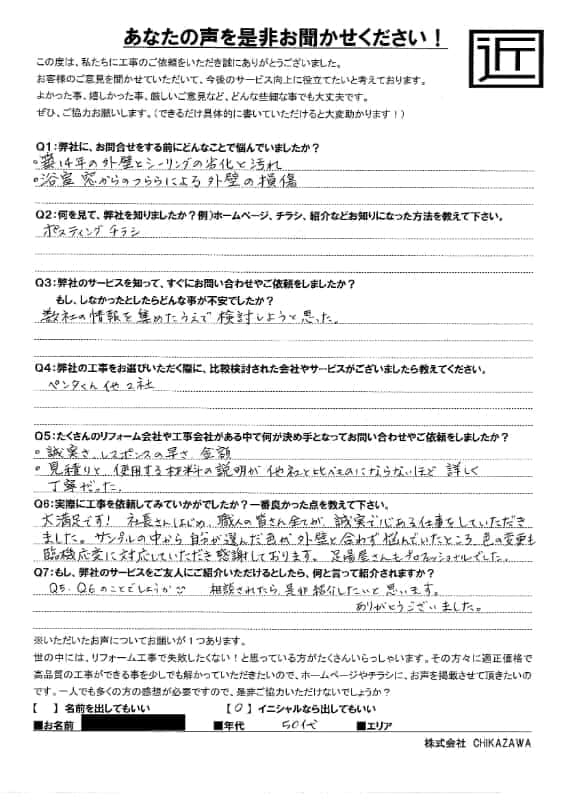 あなたの声を是非お聞かせください！
近
この度は、私たちに工事のご依頼をいただき誠にありがとうございました。
お客様のご意見を聞かせていただいて、今後のサービス向上に役立てたいと考えております。
よかった事、嬉しかった事、厳しいご意見など、どんな些細な事でも大丈夫です。
ぜひ、ご協力お願いします。（できるだけ具体的に書いていただけると大変助かります！）
Q1：弊社に、お問合せをする前にどんなことで悩んでいましたか？
○築14年の外壁とシーリングの劣化と汚れ
○浴室 窓からのつららによる外壁の損傷
Q2：何を見て、弊社を知りましたか？例）ホームページ、チラシ、紹介などお知りになった方法を教えて下さい。
ポスティング チラシ
Q3：弊社のサービスを知って、すぐにお問い合わせやご依頼をしましたか？
もし、しなかったとしたらどんな事が不安でしたか？
数社の情報を集めたうえで検討しようと思った。
Q4：弊社の工事をお選びいただく際に、比較検討された会社やサービスがございましたら教えてください。
ペンタくん 他2社
Q5：たくさんのリフォーム会社や工事会社がある中で何が決め手となってお問い合わせやご依頼をしましたか？
○誠実さ、レスポンスの早さ、金額
○見積りと 使用する材料の説明が 他社と比べものにならないほど 詳しく
丁寧だった。
Q6：実際に工事を依頼してみていかがでしたか？一番良かった点を教えて下さい。
大満足です！ 社長さんはじめ、職人の皆さん全てが、誠実で心ある仕事をしていただき
ました。サンプルの中から 自分が選んだ色が 外壁と合わず悩んでいたところ、色の変更も
臨機応変に対応していただき感謝しております。足場屋さんもプロフェッショナルでした。
Q7：もし、弊社のサービスをご友人にご紹介いただけるとしたら、何と言って紹介されますか？
Q5、Q6のことでしょうか 相談されたら、是非紹介したいと思います。
ありがとうございました。
※いただいたお声についてお願いが１つあります。
世の中には、リフォーム工事で失敗したくない！と思っている方がたくさんいらっしゃいます。その方々に適正価格で
高品質の工事ができる事を少しでも解かっていただきたいので、ホームページやチラシに、お声を掲載させて頂きたいの
です。一人でも多くの方の感想が必要ですので、是非ご協力いただけないでしょうか？
【　】名前を出してもいい 【○】イニシャルなら出してもいい
■お名前 ■年代 50代 ■エリア
株式会社 CHIKAZAWA